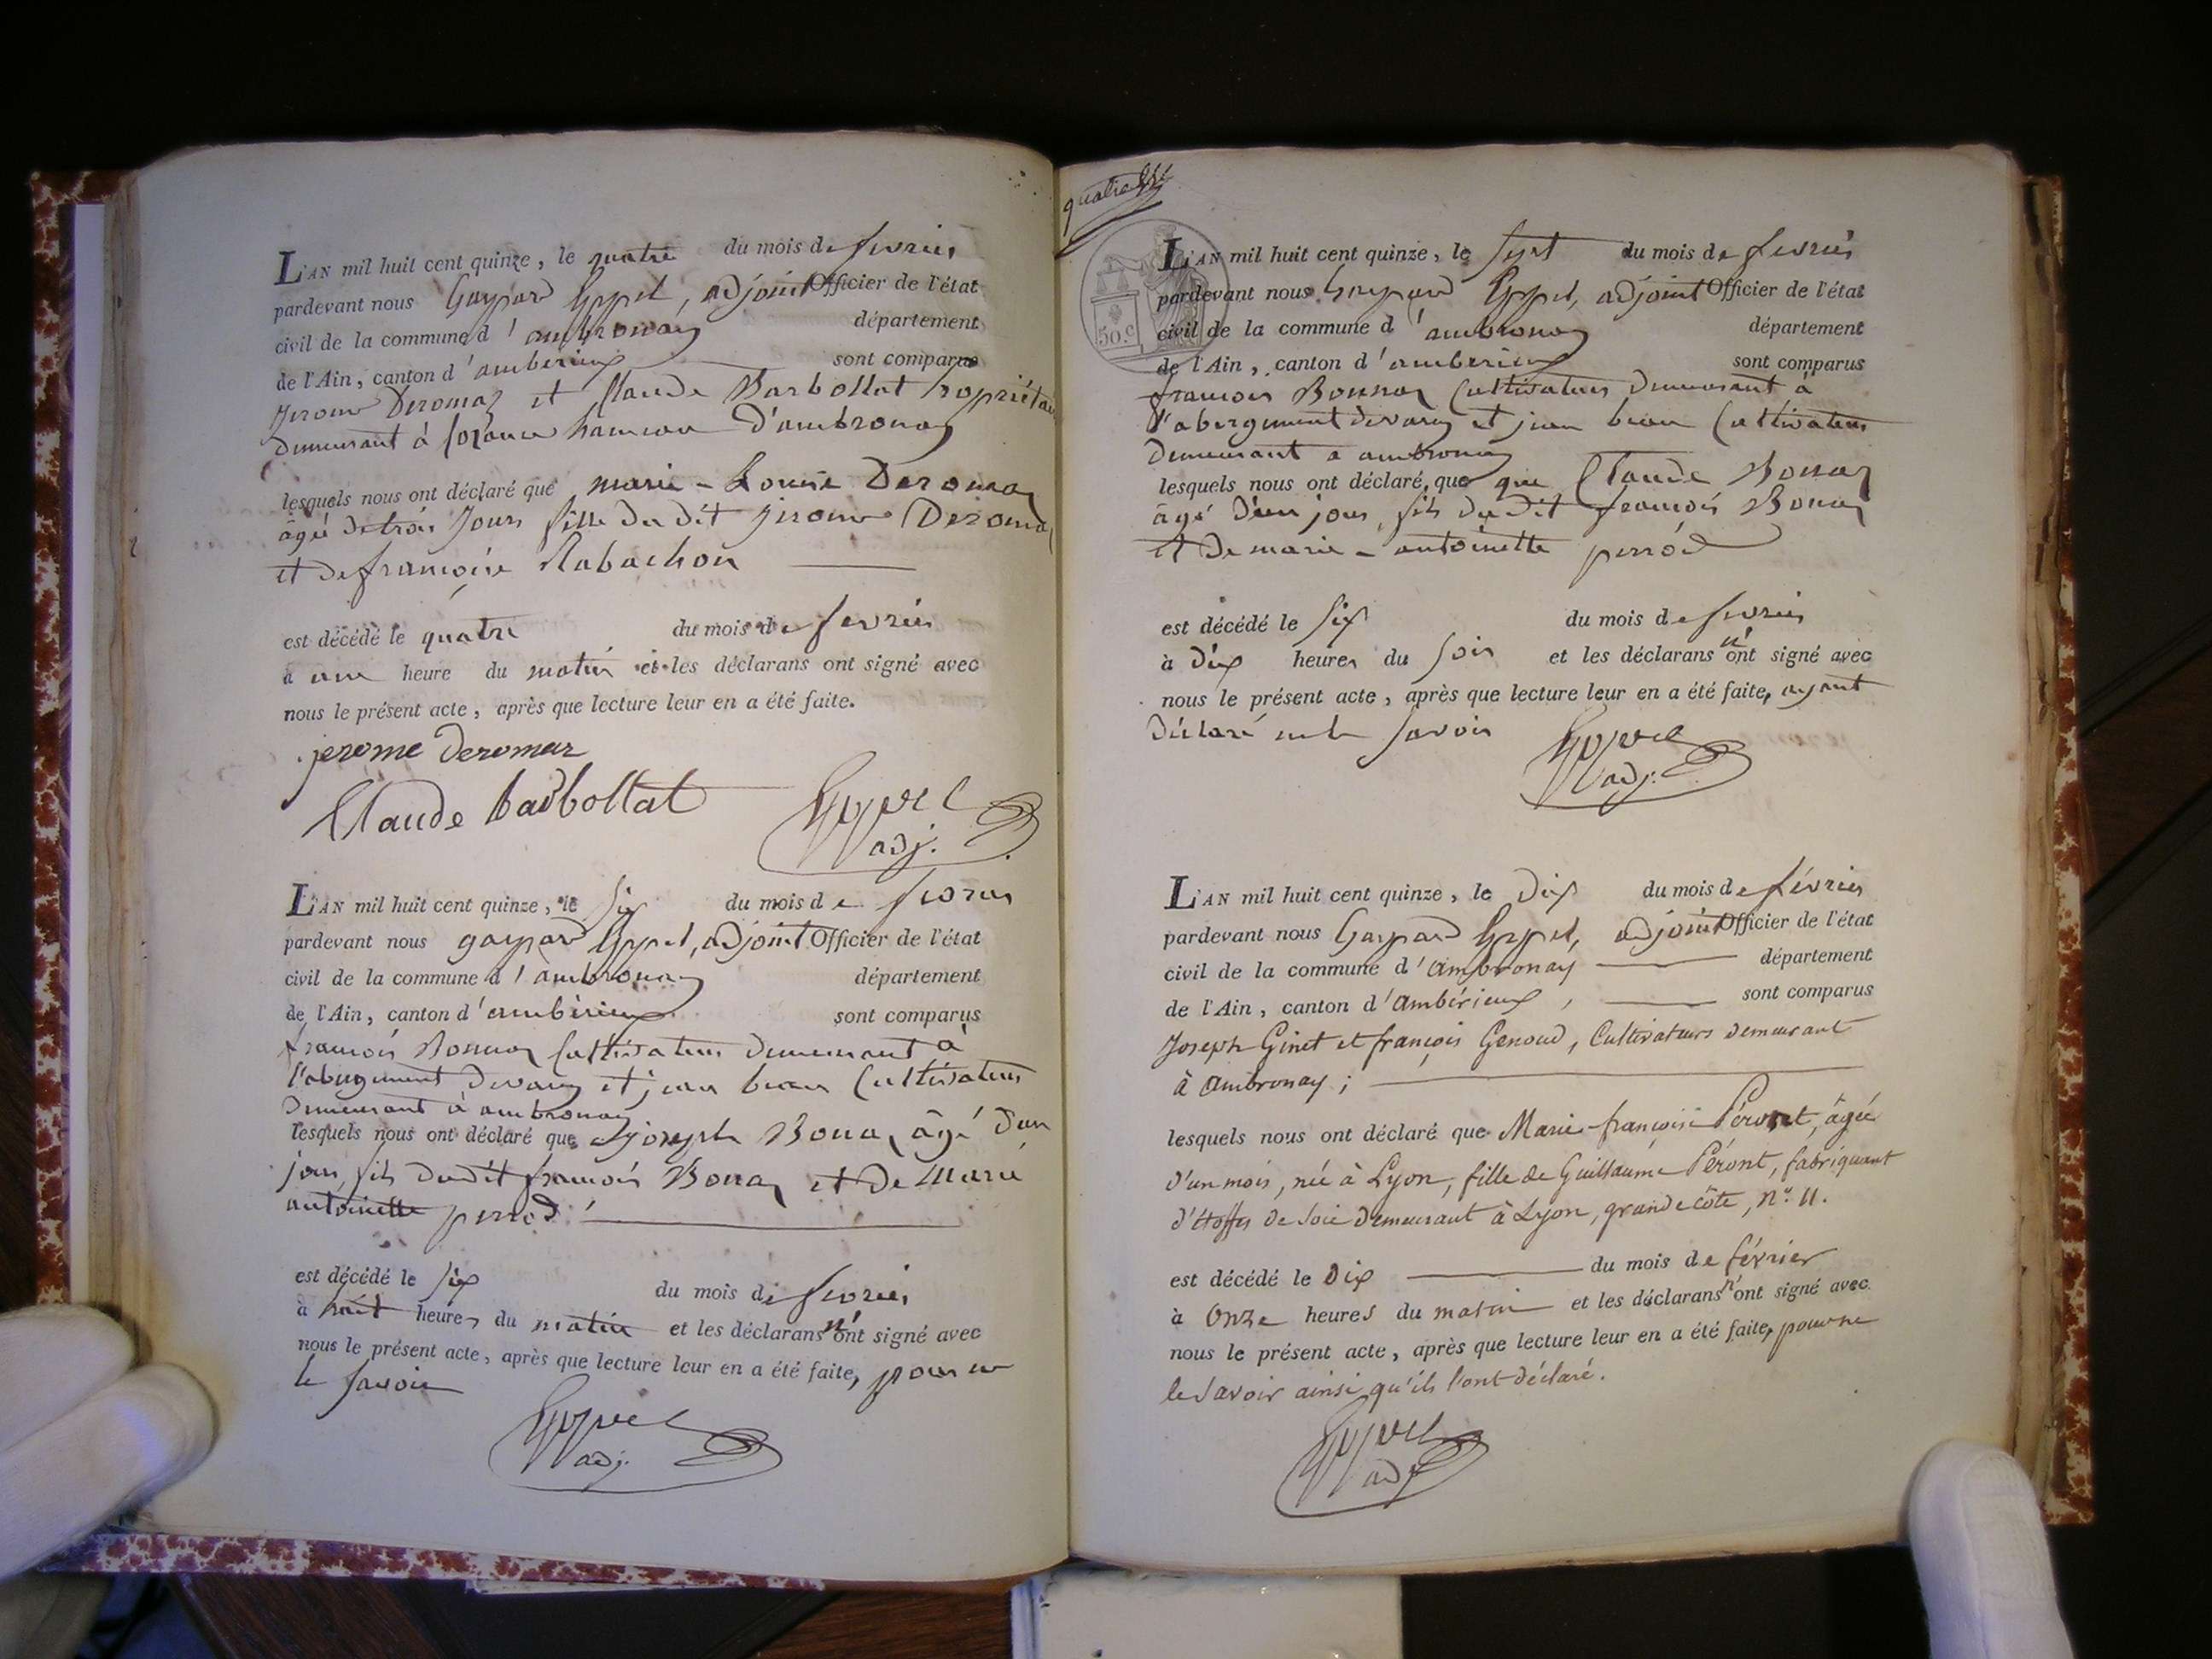 L'AN mil huit cent quinze, le quatre du mois de fevrier
pardevant nous Gaspard Eppel, adjoint Officier de l'état
civil de la commune d'ambronay département
de l'Ain, canton d'amberieux sont comparus
Jerome Deromaz et Claude Barbollat propriétai
demeurant à hameau d'ambronay
lesquels nous ont déclaré que marie-Louise Deromaz
âgé de trois Jours fille du dit Jerome Deromaz
et de françoise Rabachon
est décédé le quatre du mois de fevrier
à une heure du matin et les déclarans ont signé avec
nous le présent acte, après que lecture leur en a été faite.
jerome deromaz
Claude barbollat
Eppel
adj.
L'AN mil huit cent quinze, le six du mois de fevrier
pardevant nous gaspard Eppel, adjoint Officier de l'état
civil de la commune d'ambronay département
de l'Ain, canton d'amberieux sont comparus
françois Bonnaz Cultivateur demeurant à
l'abergement devarey et jean beau Cultivateur
demeurant à ambronay
lesquels nous ont déclaré que joseph Bonaz âgé d'un
jour, fils dudit françois Bonaz et de Marie
antoinette perrod
est décédé le six du mois de fevrier
à huit heures du matin et les déclarans n'ont signé avec
nous le présent acte, après que lecture leur en a été faite, pour ne
le savoir
Eppel
adj.
quatre
50.c
L'AN mil huit cent quinze, le sept du mois de fevrier
pardevant nous Gaspard Eppel, adjoint Officier de l'état
civil de la commune d'ambronay département
de l'Ain, canton d'amberieux sont comparus
françois Bonnaz Cultivateur demeurant à
l'abergement devarey et jean beau Cultivateur
demeurant a ambronay
lesquels nous ont déclaré, que que Claude Bonaz
âgé d'un jour, fils du dit françois Bonaz
et de marie-antoinette perrod
est décédé le six du mois de fevrier
à dix heures du soir et les déclarans n'ont signé avec
nous le présent acte, après que lecture leur en a été faite, ayant
déclaré ne le savoir
Eppel
adj.
L'AN mil huit cent quinze, le dix du mois de février
pardevant nous Gaspard Eppel, adjoint Officier de l'état
civil de la commune d'Ambronay département
de l'Ain, canton d'Ambérieux, sont comparus
Joseph Ginet et françois Genoud, Cultivateurs demeurant
à Ambronay;
lesquels nous ont déclaré que Marie-françoise Péront, âgée
d'un mois, née à Lyon, fille de Guillaume Péront, fabriquant
d'étoffes de soie demeurant à Lyon, grande côte, n.° 11.
est décédé le Dix du mois de février
à Onze heures du matin et les déclarans n'ont signé avec
nous le présent acte, après que lecture leur en a été faite, pour ne
le savoir ainsi qu'ils l'ont déclaré.
Eppel
adj